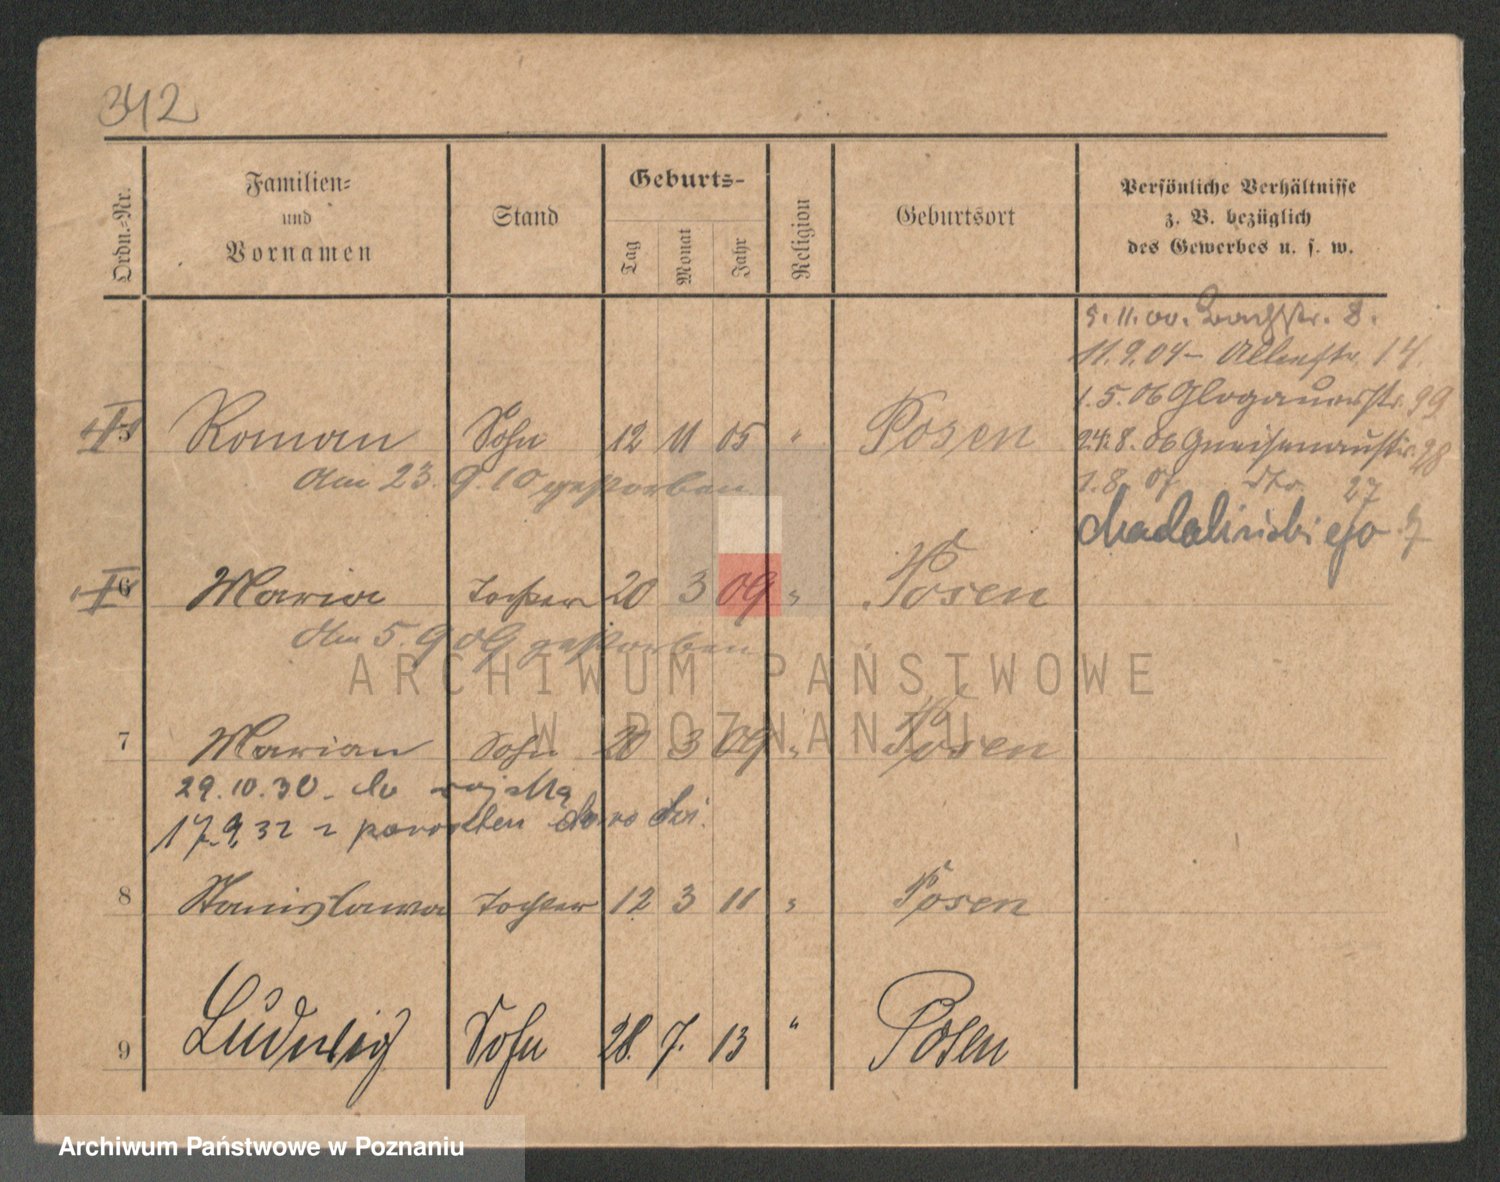 342
Ordn.-Nr.
Familien-
und
Vornamen
Stand
Geburts-
Tag
Monat
Jahr
Religion
Geburtsort
Persönliche Verhältnisse
z. B. bezüglich
des Gewerbes u. s. w.
5.11.00. Bachstr. 8.
11.9.04 - Allerstr. 14.
1.5.06 Glogauerstr. 99
24.8.06 Gneisenaustr. 28
1.8.07 dto. 27
Madalińskiego 7
5 Roman Sohn 12 11 05 " Posen
am 23.9.10 gestorben
6 Maria Tochter 20 3 09 " Posen
Am 5.9 09 gestorben
7 Marian Sohn 20 3 09 " Posen
29.10.30 - do wojska
17.9.32 z powrotem
8 Stanislawa Tochter 12 3 11 " Posen
9 Ludwig Sohn 28. 7. 13 " Posen
ARCHIWUM PAŃSTWOWE
W POZNANIU
Archiwum Państwowe w Poznaniu